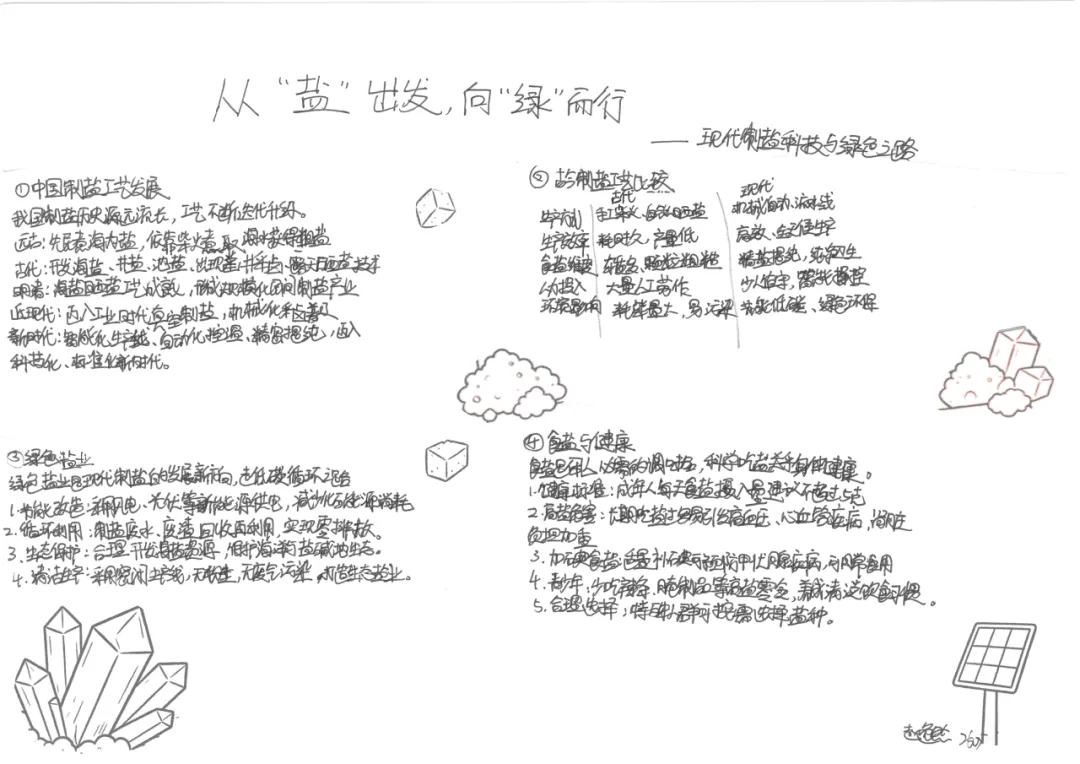 从“盐”出发，向“绿”而行
—— 现代制盐科技与绿色之路
①中国制盐工艺发展
我国制盐历史源远流长，工艺不断迭代升级。
远古：先民煮海为盐，依靠柴火煮取海水获得粗盐
古代：开发海盐、井盐、池盐，出现盖井汲卤、晒盐技术
明清：海盐晒盐工艺成熟，形成规模化民间制盐产业
近现代：迈入工业时代，真空制盐，机械化积普及
新时代：智能化生产线、自动化控温、精密提纯，迈入
科技化、标准化新时代。
②古今制盐工艺比较
古代 现代
生产方式 手工柴火、自然晒盐 机械自动、流水线
生产效率 耗时久，产量低 高效、全天候生产
食盐纯度 杂质多，颗粒粗糙 精盐提纯，纯净卫生
人力投入 大量人工劳作 少人值守，智能操控
环境影响 耗能量大，易污染 节能低碳、绿色环保
③绿色盐业
绿色盐业是现代制盐的发展新方向，走低碳循环之路
1.节能改造：采用风电、光伏等新能源供电，减少化石能源消耗
2.循环利用：制盐废水、废渣回收再利用，实现零排放。
3.生态保护：合理开发海盐资源，保护海洋与盐碱地生态。
4.清洁生产：采用密闭生产线，无粉尘，无废气污染，打造生态盐业。
④食盐与健康
食盐是人人必需的调味品，科学吃盐关乎身体健康。
1.健康标准：成年人每天食盐摄入量建议不超过5克
2.高盐危害：长期吃盐过多易引发高血压、心血管疾病，肾脏
负担加重
3.加碘食盐：适量补碘可预防甲状腺疾病，日常食用
4.青少年：少吃辣条、腌制品等高盐零食，养成清淡饮食习惯。
5.合理选择，特殊人群可按需选择盐种。